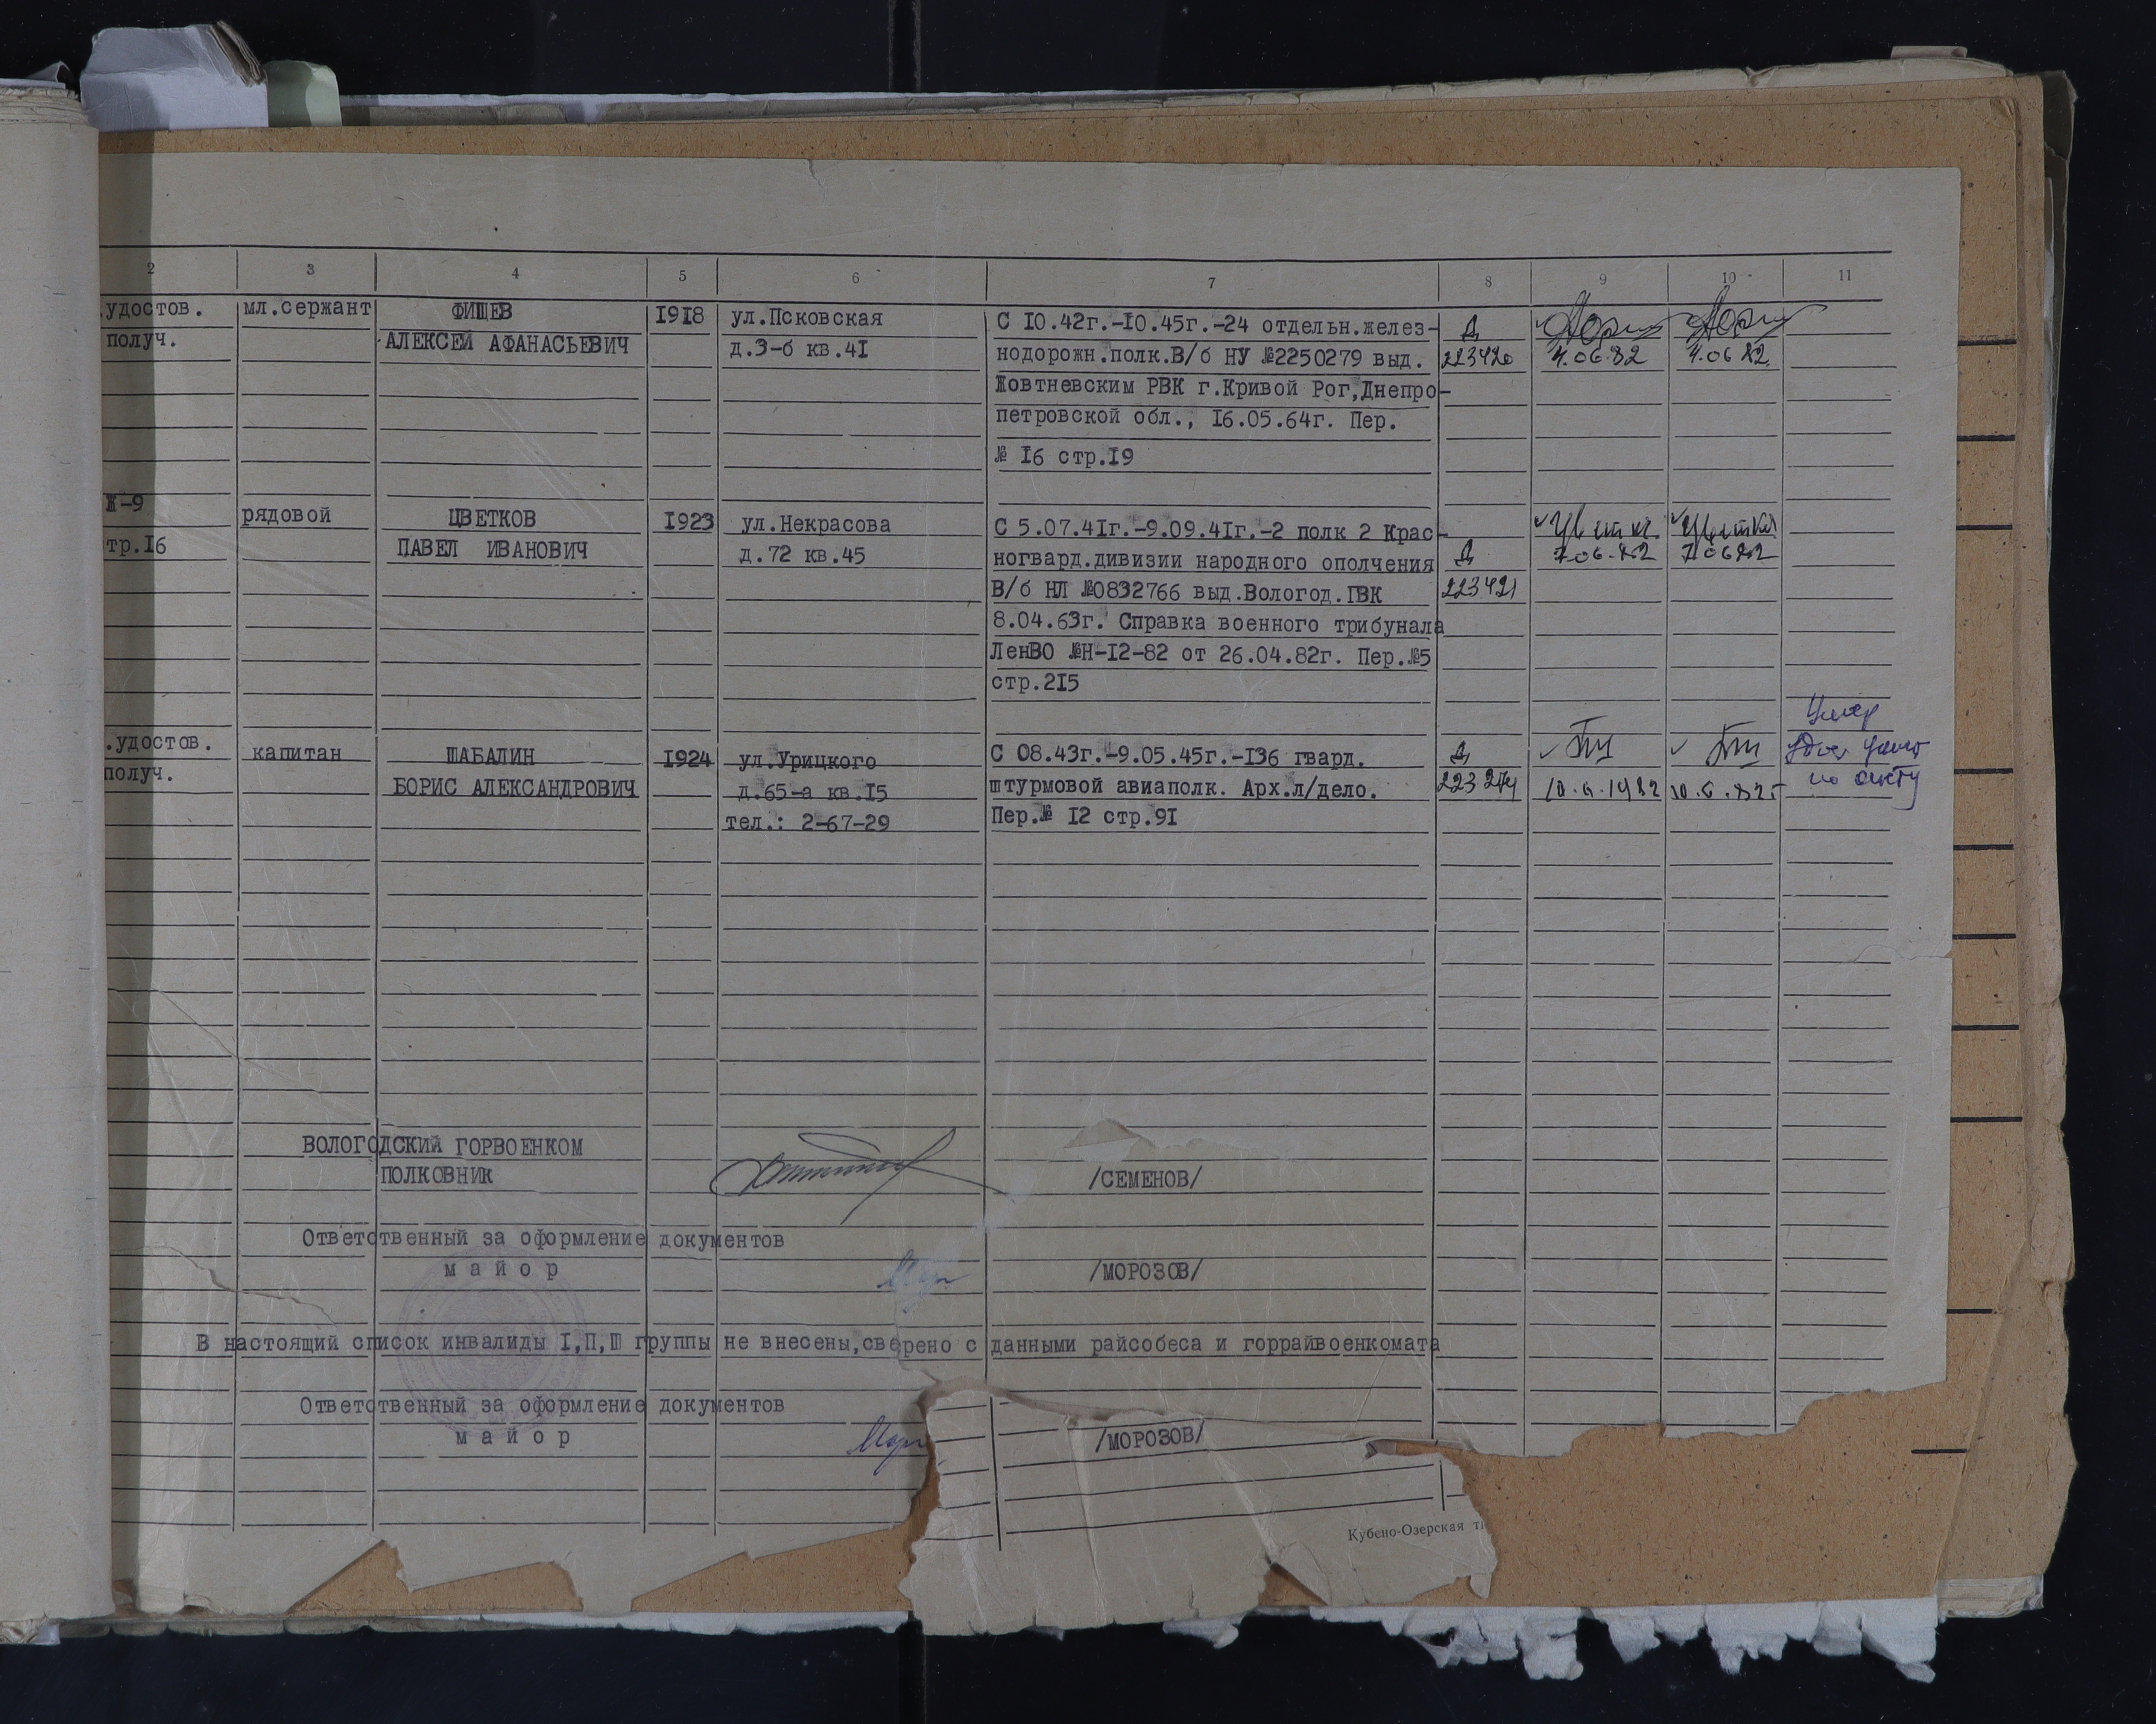 2 3 4 5 6 7 8 9 10 11
.удостов. мл.сержант ФИЩЕВ 1918 ул.Псковская С 10.42г.-10.45г.-24 отдельн.желез- Д
получ. АЛЕКСЕЙ АФАНАСЬЕВИЧ д.3-б кв.41 нодорожн.полк.В/б НУ №2250279 выд. 223420 7.06.82 7.06.82
Жовтневским РВК г.Кривой Рог,Днепро-
петровской обл., 16.05.64г. Пер.
№ 16 стр.19
Ж-9 рядовой ЦВЕТКОВ 1923 ул.Некрасова С 5.07.41г.-9.09.41г.-2 полк 2 Крас-
тр.16 ПАВЕЛ ИВАНОВИЧ д.72 кв.45 ногвард.дивизии народного ополчения Д 7.06.82 7.06.82
В/б НЛ №0832766 выд.Вологод.ГВК 223421
8.04.63г. Справка военного трибунала
ЛенВО №Н-12-82 от 26.04.82г. Пер.№5
стр.215
Умер
.удостов. капитан ШАБАЛИН 1924 ул.Урицкого С 08.43г.-9.05.45г.-136 гвард. Д
получ. БОРИС АЛЕКСАНДРОВИЧ д.65-а кв.15 штурмовой авиаполк. Арх.л/дело. 10.6.1982 10.6.82г по акту
тел.: 2-67-29 Пер.№ 12 стр.91
ВОЛОГОДСКИЙ ГОРВОЕНКОМ
ПОЛКОВНИК /СЕМЕНОВ/
Ответственный за оформление документов
майор /МОРОЗОВ/
В настоящий список инвалиды I,П,Ш группы не внесены,сверено с данными райсобеса и горрайвоенкомата
Ответственный за оформление документов
майор /МОРОЗОВ/
Кубено-Озерская